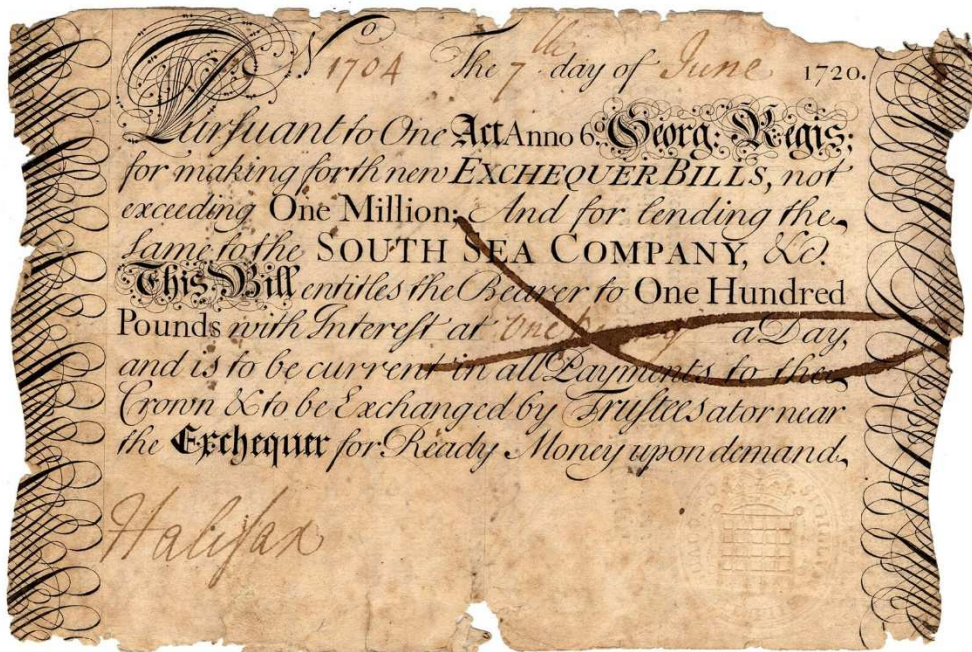 No 1704 The 7th day of June 1720.
Pursuant to One Act Anno 6.o Georg: Regis;
for making forth new EXCHEQUER BILLS, not
exceeding One Million; And for lending the
same to the SOUTH SEA COMPANY, &c.
This Bill entitles the Bearer to One Hundred
Pounds with Interest at One Penny a Day,
and is to be current in all Payments to the
Crown & to be Exchanged by Trustees at or near
the Exchequer for Ready Money upon demand
Halifax